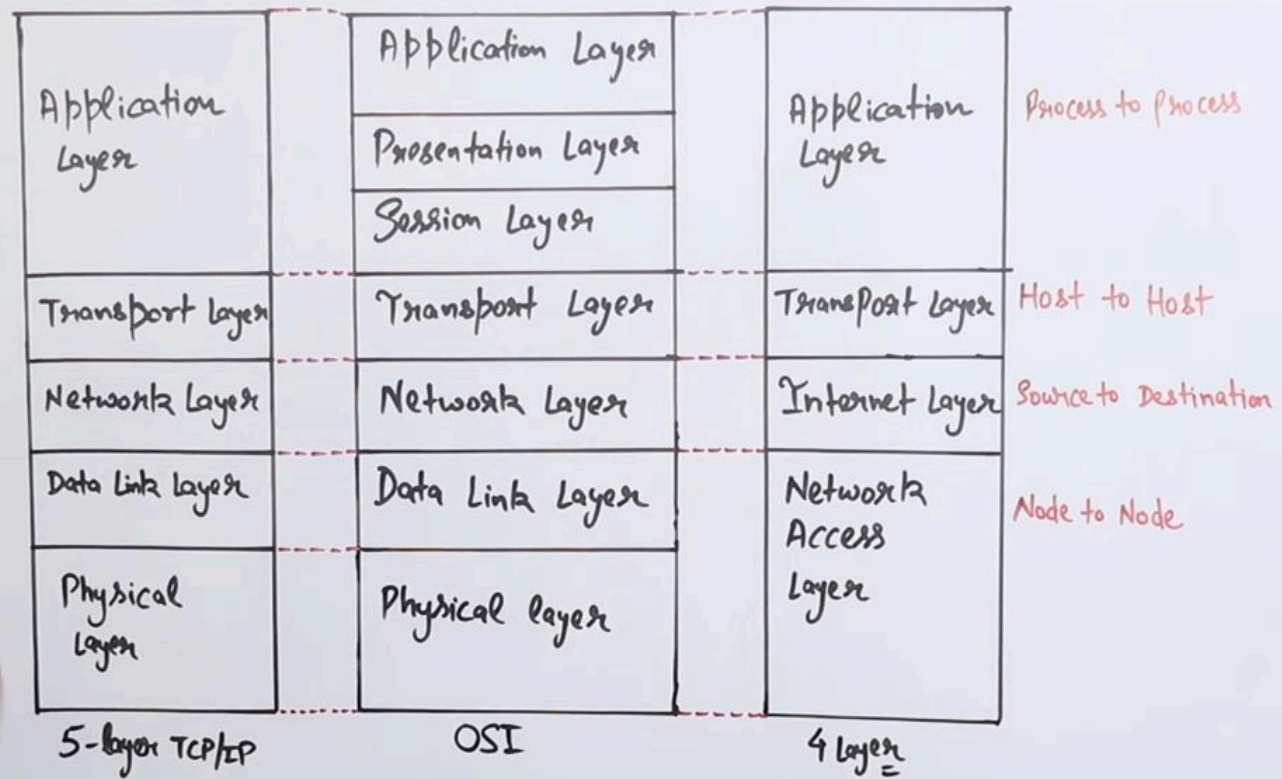 Application
Layer
Transport Layer
Network Layer
Data Link Layer
Physical
Layer
5-layer TCP/IP
Application Layer
Presentation Layer
Session Layer
Transport Layer
Network Layer
Data Link Layer
Physical layer
OSI
Application
Layer
Transport Layer
Internet Layer
Network
Access
Layer
4 Layer
Process to process
Host to Host
Source to Destination
Node to Node